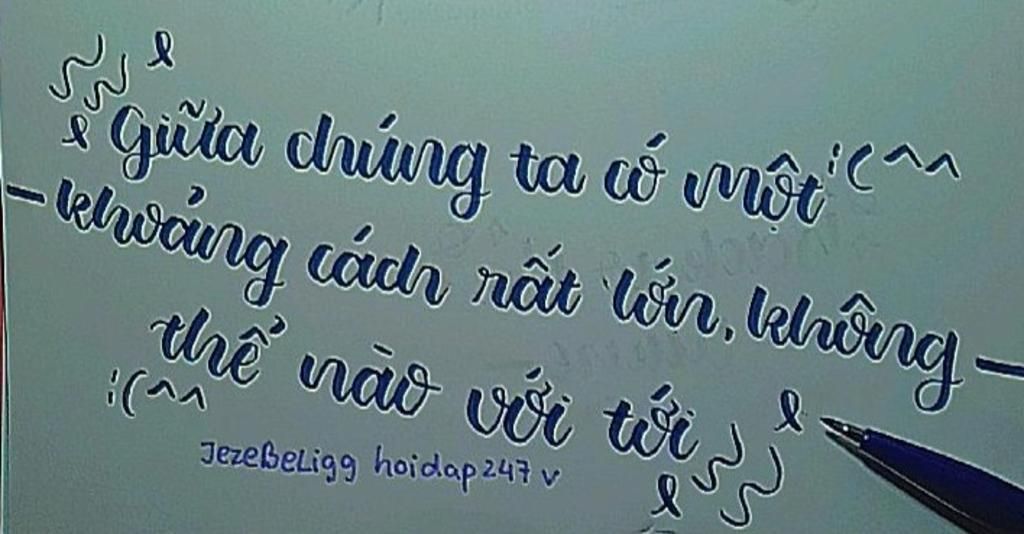 Giữa chúng ta có một :(^^
- khoảng cách rất lớn, không -
thể nào với tới
:(^^
JezeBeLigg hoidap247 v